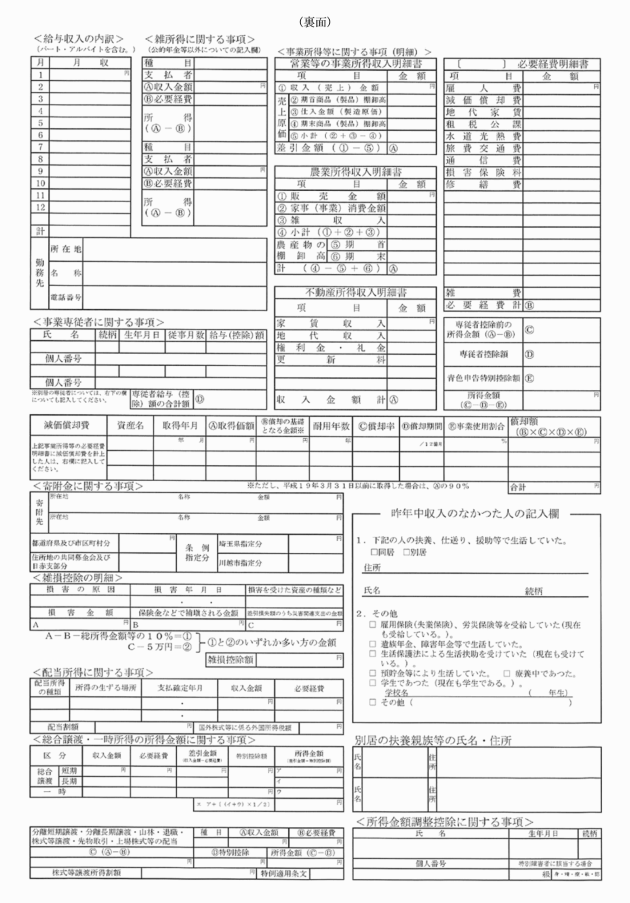 （裏面）
＜給与収入の内訳＞
（パート・アルバイトを含む。）
月 月収
1 円
2
3
4
5
6
7
8
9
10
11
12
計
勤務先
所在地
名称
電話番号
＜雑所得に関する事項＞
（公的年金等以外についての記入欄）
種目
支払者
Ⓐ収入金額 円
Ⓑ必要経費
所得
（Ⓐ－Ⓑ）
種目
支払者
Ⓐ収入金額 円
Ⓑ必要経費
所得
（Ⓐ－Ⓑ）
＜事業所得等に関する事項（明細）＞
営業等の事業所得収入明細書
項目 金額
①収入（売上）金額 円
売上原価
②期首商品（製品）棚卸高
③仕入金額（製造原価）
④期末商品（製品）棚卸高
⑤小計（②＋③－④）
差引金額（①－⑤） Ⓐ
農業所得収入明細書
項目 金額
①販売金額 円
②家事（事業）消費金額
③雑収入
④小計（①＋②＋③）
農産物の棚卸高
⑤期首
⑥期末
計（④－⑤＋⑥） Ⓐ
不動産所得収入明細書
項目 金額
家賃収入 円
地代収入
権利金・礼金
更新料
収入金額計 Ⓐ
［　　］必要経費明細書
項目 金額
雇人費 円
減価償却費
地代家賃
租税公課
水道光熱費
旅費交通費
通信費
損害保険料
修繕費
雑費
必要経費計 Ⓑ
専従者控除前の
所得金額（Ⓐ－Ⓑ） Ⓒ
専従者控除額 Ⓓ
青色申告特別控除額 Ⓔ
所得金額
（Ⓒ－Ⓓ－Ⓔ）
＜事業専従者に関する事項＞
氏名 続柄 生年月日 従事月数 給与(控除)額
個人番号
個人番号
※別居の専従者については、右下の欄
についても記入してください。
専従者給与（控
除）額の合計額 Ⓓ
減価償却費 資産名 取得年月 Ⓐ取得価額 Ⓑ償却の基礎となる金額※ 耐用年数 Ⓒ償却率 Ⓓ償却期間 Ⓔ事業使用割合 償却額（Ⓑ×Ⓒ×Ⓓ×Ⓔ）
上記事業所得等の必要経費
明細書に減価償却費を計上
した人は、右欄に記入して
ください。
年 月 円 円 年 ／１２箇月 ％ 円
※ただし、平成１９年３月３１日以前に取得した場合は、Ⓐの９０％
合計 円
＜寄附金に関する事項＞
寄附先
所在地 名称 金額 円
所在地 名称 金額 円
都道府県及び市区町村分 円
住所地の共同募金会及び
日赤支部分 円
条例指定分
埼玉県指定分 円
川越市指定分 円
＜雑損控除の明細＞
損害の原因 損害年月日 損害を受けた資産の種類など
・ ・
損害金額 保険金などで補塡される金額 差引損失額のうち災害関連支出の金額
A 円 B 円 C 円
A－B－総所得金額等の１０％＝①
C－５万円＝②
①と②のいずれか多い方の金額
雑損控除額 円
＜配当所得に関する事項＞
配当所得の種類 所得の生ずる場所 支払確定年月 収入金額 必要経費
・ 円 円
・
配当割額 円 国外株式等に係る外国所得税額 円
＜総合譲渡・一時所得の所得金額に関する事項＞
区分 収入金額 必要経費 差引金額（収入金額－必要経費） 特別控除額 所得金額（差引金額－特別控除額）
総合譲渡 短期 円 円 円 円 ア 円
長期 イ
一時 ウ
エ ア＋｛（イ＋ウ）×１/２｝ 円
分離短期譲渡・分離長期譲渡・山林・退職・
株式等譲渡・先物取引・上場株式等の配当
種目 Ⓐ収入金額 Ⓑ必要経費
円 円
Ⓒ（Ⓐ－Ⓑ） Ⓓ特別控除 所得金額（Ⓒ－Ⓓ）
円 円 円
株式等譲渡所得割額 円 特例適用条文
昨年中収入のなかつた人の記入欄
１．下記の人の扶養、仕送り、援助等で生活していた。
□同居 □別居
住所
氏名 続柄
２．その他
□ 雇用保険(失業保険)、労災保険等を受給していた(現在
も受給している。)。
□ 遺族年金、障害年金等で生活していた。
□ 生活保護法による生活扶助を受けていた（現在も受けて
いる。）。
□ 預貯金等により生活していた。 □ 療養中であつた。
□ 学生であつた（現在も学生である。）。
学校名 （　　年生）
□ その他（　　）
別居の扶養親族等の氏名・住所
氏名 住所
氏名 住所
＜所得金額調整控除に関する事項＞
氏名 生年月日 続柄
個人番号 特別障害者に該当する場合
級